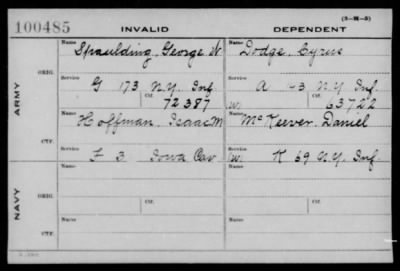 (3-W-3)
100485 INVALID DEPENDENT
Name Name
Spaulding, George W. Dodge, Cyrus
ORIG.
Service Service
G 173 N.Y. Inf A N.Y. Inf.
Ctf. Ctf.
72387 W. 63722
ARMY
Name Name
Hoffman, Isaac M McKeever, Daniel
CTF.
Service Service
F 3 Iowa Cav W. K 69 N.Y. Inf.
Name Name
ORIG.
Service Service
Ctf. Ctf.
NAVY
Name Name
CTF.